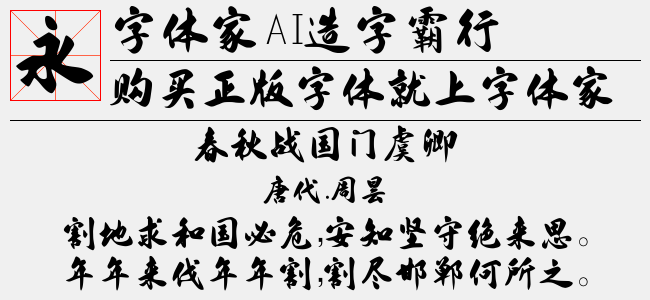 永
字体家AI造字霸行
购买正版字体就上字体家
春秋战国门虞卿
唐代.周昙
割地求和国必危,安知坚守绝来思。
年年来伐年年割,割尽邯郸何所之。